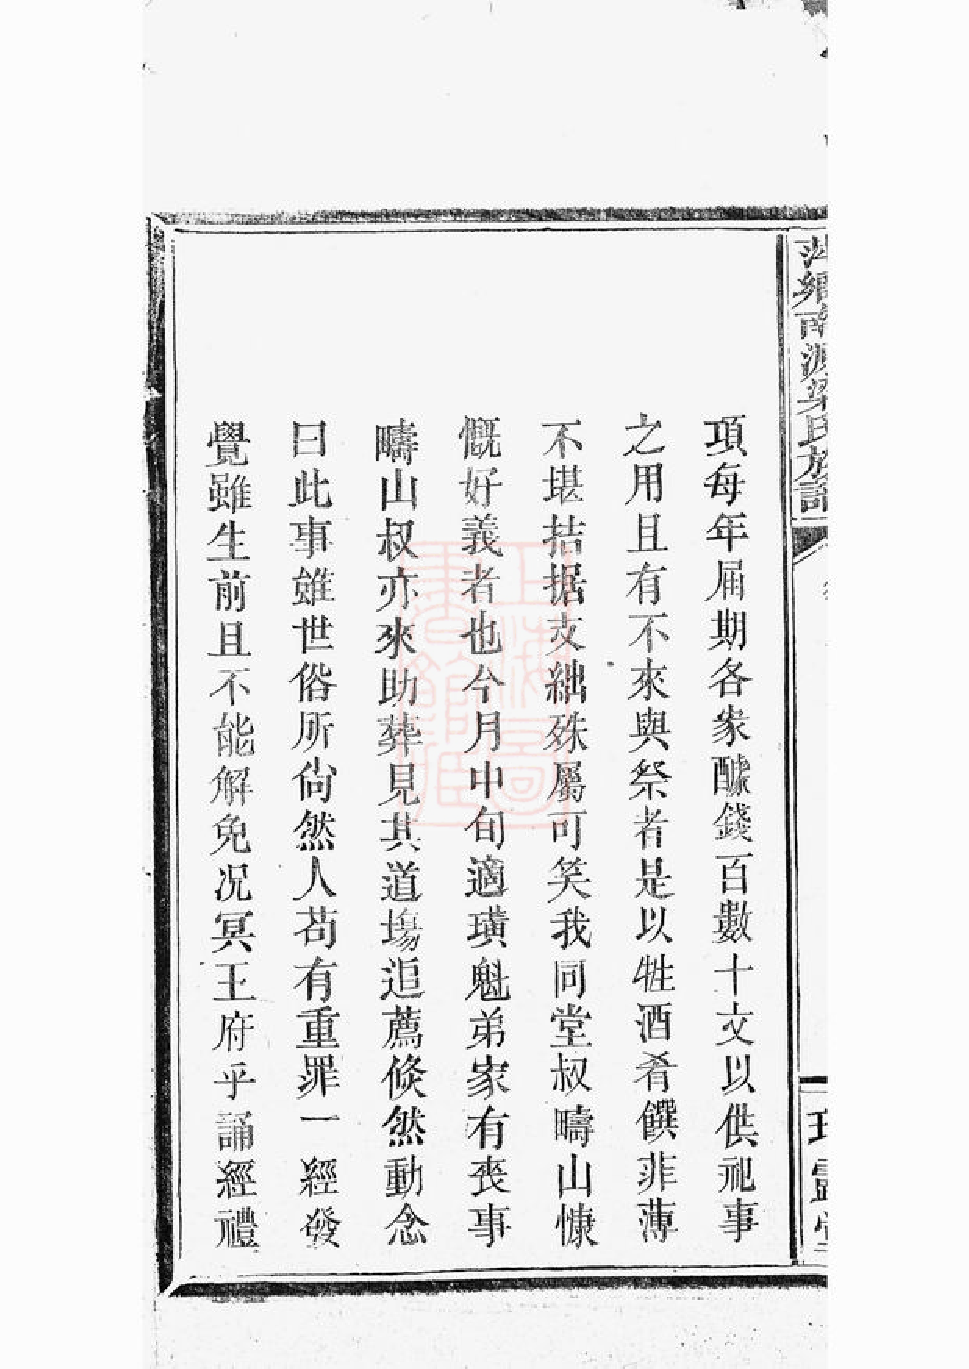 萍鄉南源梁氏族譜
項每年屆期各衆醵錢百數十文以供祀事
之用且有不來與祭者是以牲酒肴饌菲薄
不堪拮据支絀殊屬可笑我同堂叔疇山慷
慨好義者也今月中旬適璜魁弟家有喪事
疇山叔亦來助葬見其道場追薦倐然動念
曰此事雖世俗所尙然人苟有重罪一經發
覺雖生前且不能解免况冥王府乎誦經禮
上海圖書館藏